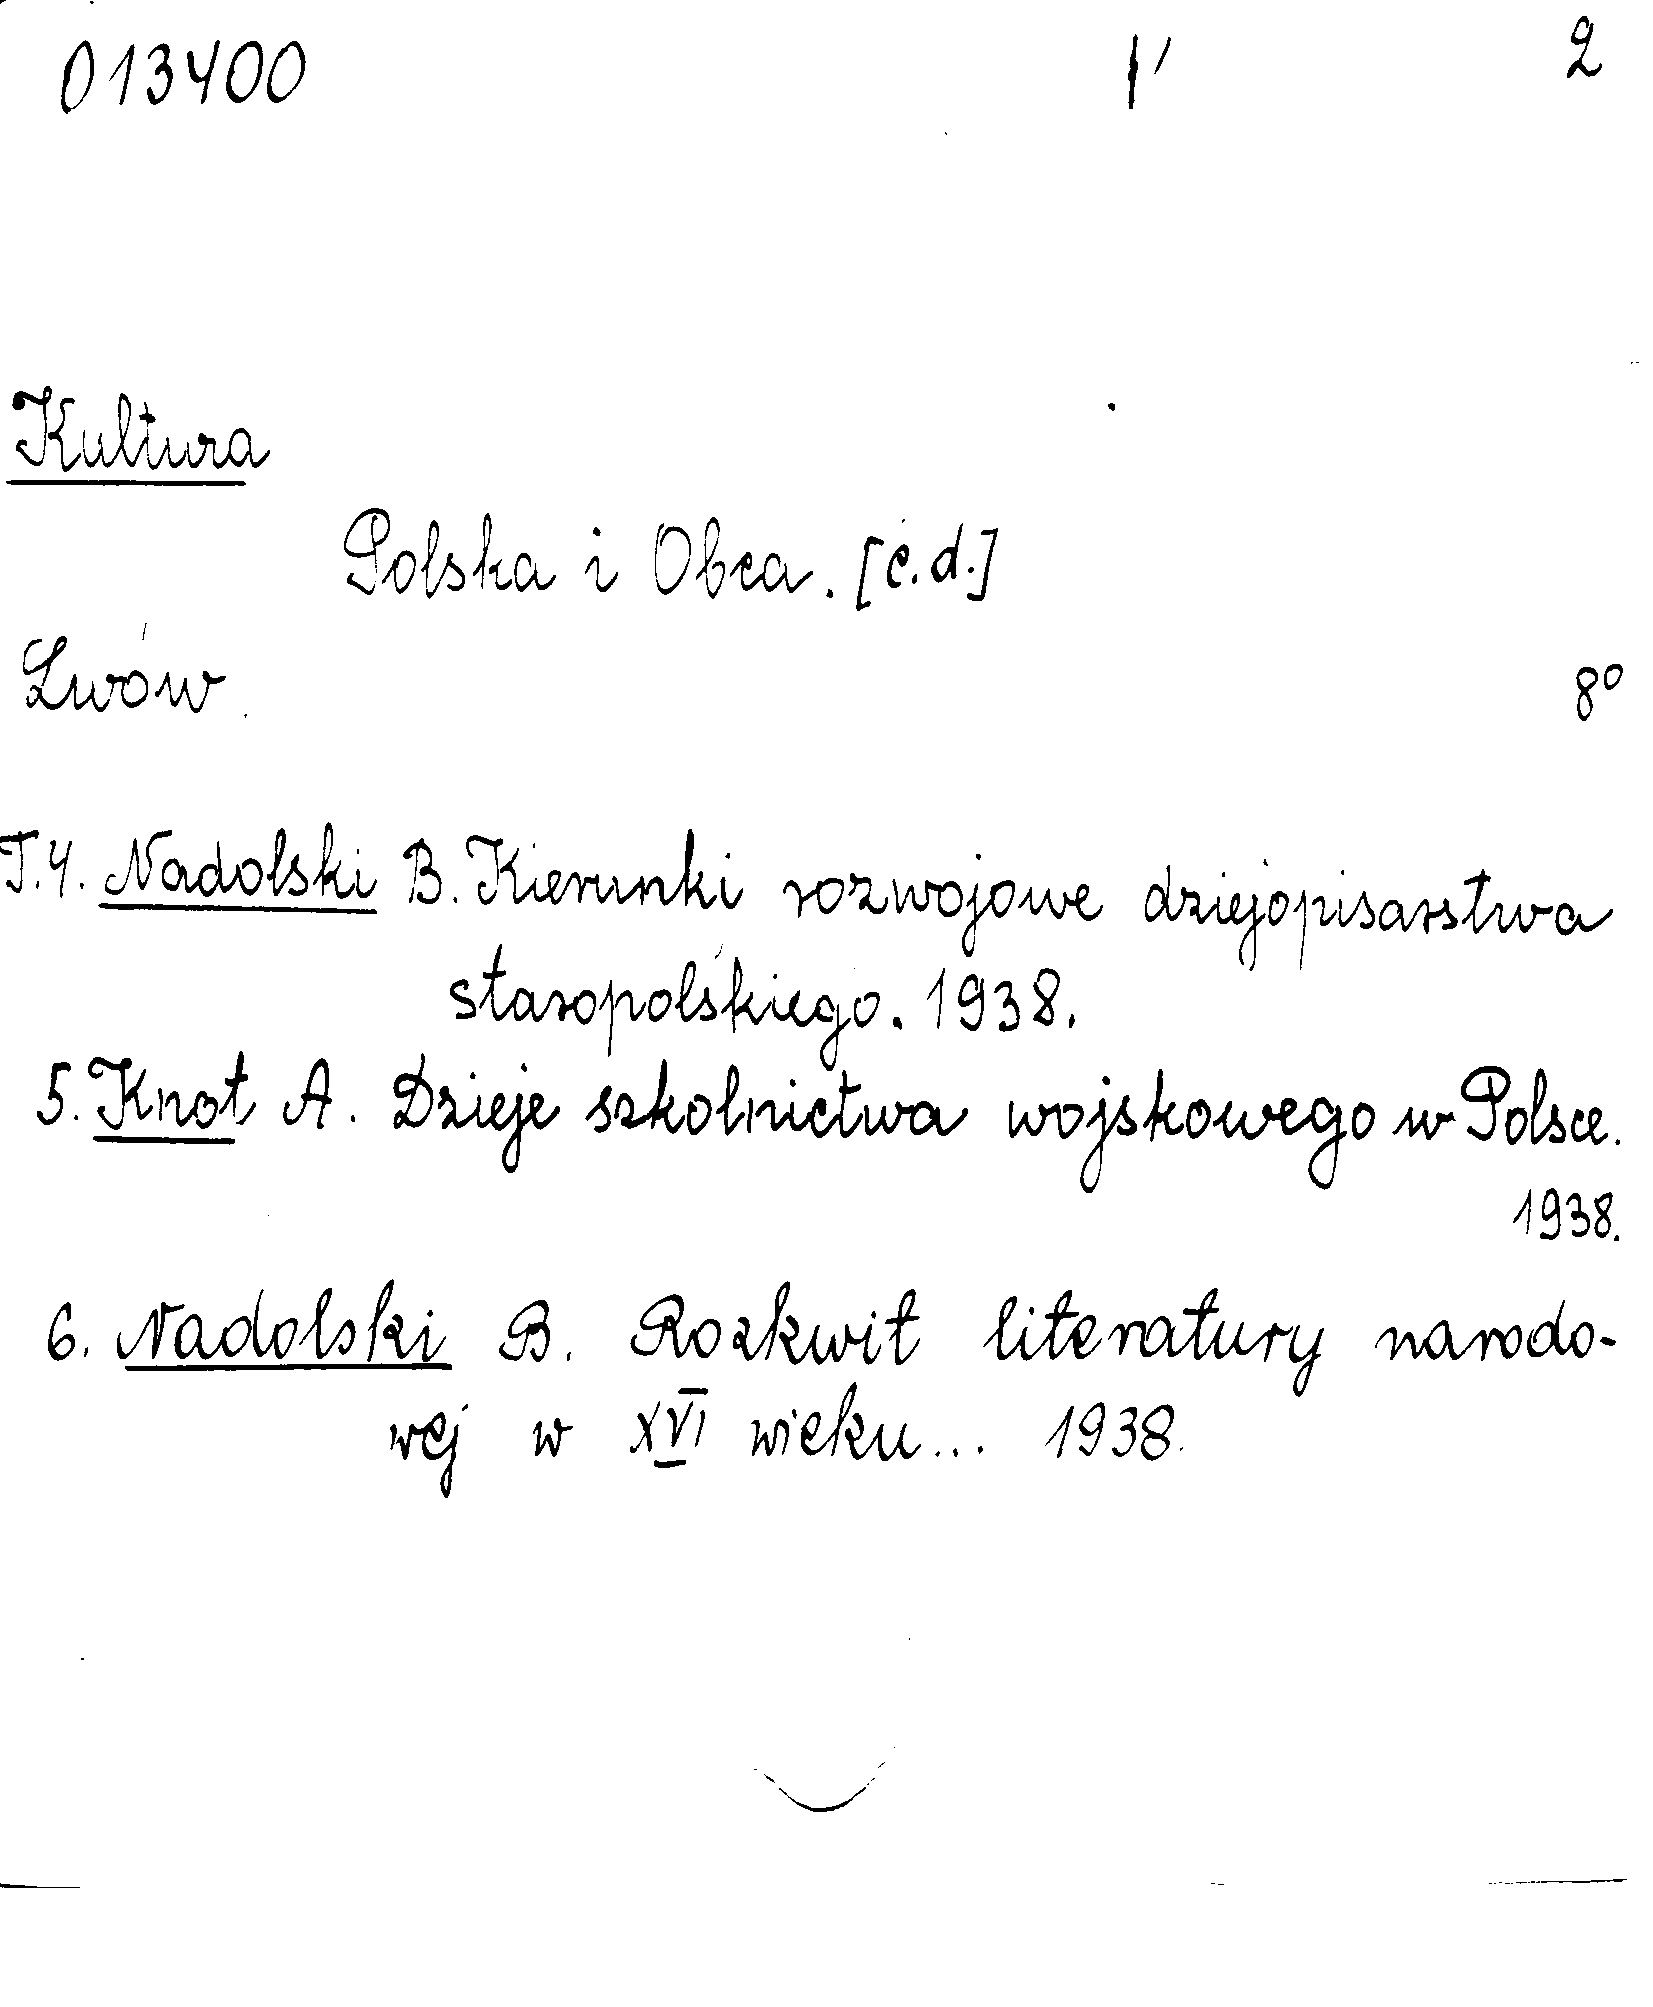 013400 2
Kultura
Polska i Obca. [c.d.]
Lwów. 8°
T.4. Nadolski B. Kierunki rozwojowe dziejopisarstwa
staropolskiego. 1938.
5. Knot A. Dzieje szkolnictwa wojskowego w Polsce.
1938.
6. Nadolski B. Rozkwit literatury narodo-
wej w XVI wieku... 1938.